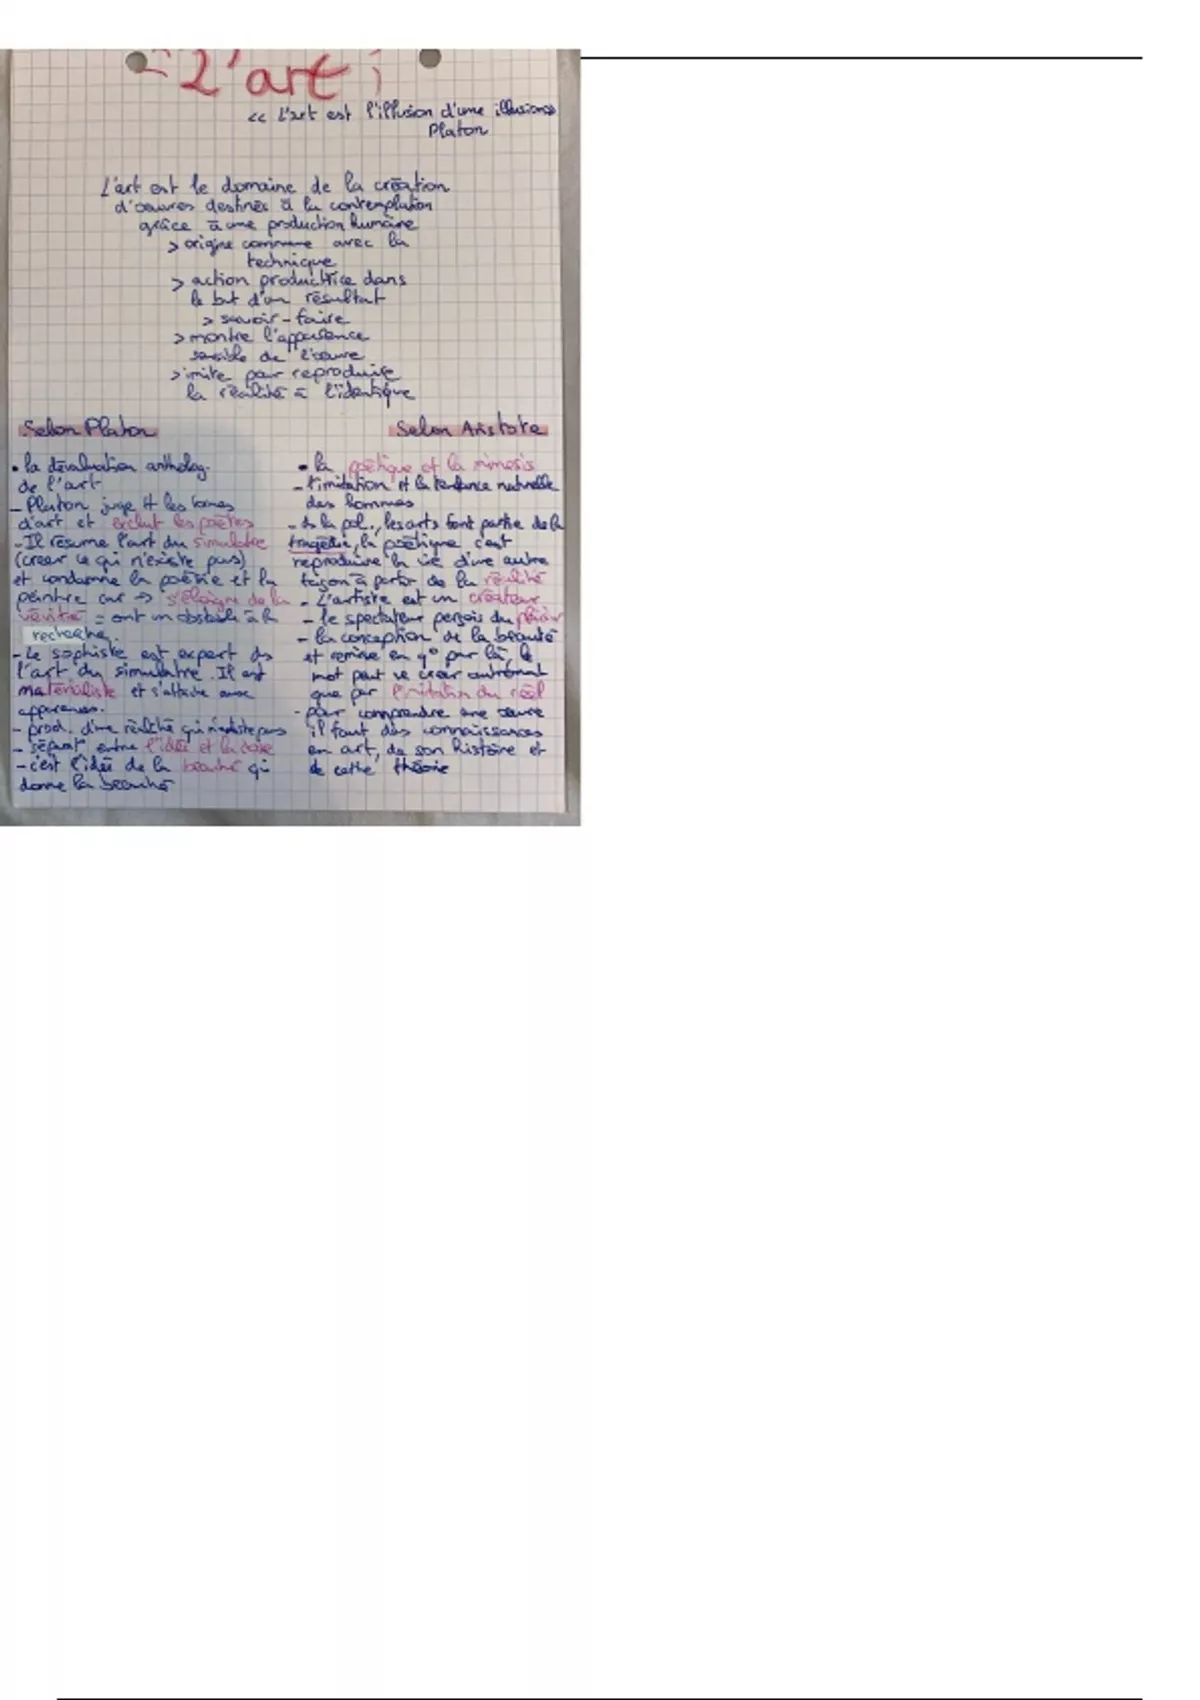 L'art
<< L'art est l'illusion d'une illusion>>
Platon
L'art est le domaine de la création
d'oeuvres destinés à la contemplation
grâce à une production humaine
> origine commune avec la
technique
> action productrice dans
le but d'un résultat
> savoir-faire
> montre l'apparence
sensible de l'oeuvre
> imite pour reproduire
la réalité à l'identique
Selon Platon
• la dévaluation antholog.
de l'art
- Platon juge tt les formes
d'art et exclut les poètes
- Il résume l'art du simulacre
(creer ce qui n'existe pas)
et condamne la poésie et la
peintre car → s'éloigne de la
vérité = ont un obstacle à la
recherche.
- Le sophiste est expert ds
l'art du simulacre. Il est
matérialiste et s'attache aux
apparences.
- prod. d'une réalité qui n'existe pas
- séparat° entre l'idée et la chose
- c'est l'idée de la beauté qui
donne la beauté
Selon Aristote
• la poétique et la mimesis
- l'imitation et la tendance naturelle
des hommes
- ds la pol., les arts font partie de la
tragédie, la poétique c'est
reproduire la vie d'une autre
façon à partir de la réalité
- L'artiste est un créateur
- le spectateur perçois du plaisir
- la conception de la beauté
et remise en q° par là le
mot peut se créer autrement
que par l'imitation du réel
- pour comprendre une oeuvre
il faut des connaissances
en art, de son histoire et
de cette théorie